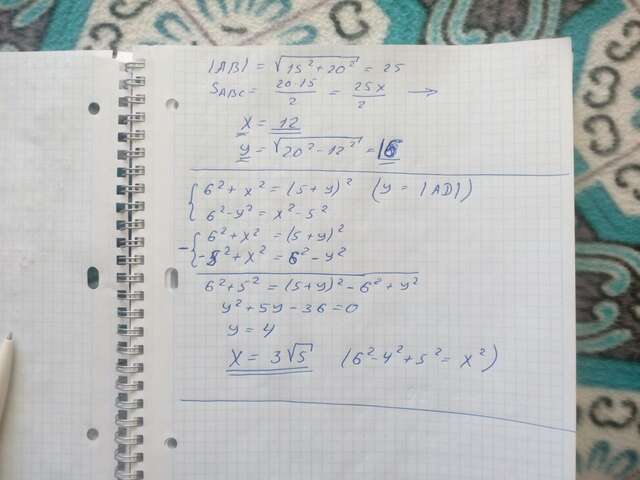 |AB| = √15² + 20² = 25
S_ABC = 20·15/2 = 25x/2 →
x = 12
y = √20² - 12² = 16
{ 6² + x² = (5 + y)² (y = |AD|)
6² - y² = x² - 5²
- { 6² + x² = (5 + y)²
-5² + x² = 6² - y²
6² + 5² = (5 + y)² - 6² + y²
y² + 5y - 36 = 0
y = 4
x = 3√5 (6² - 4² + 5² = x²)